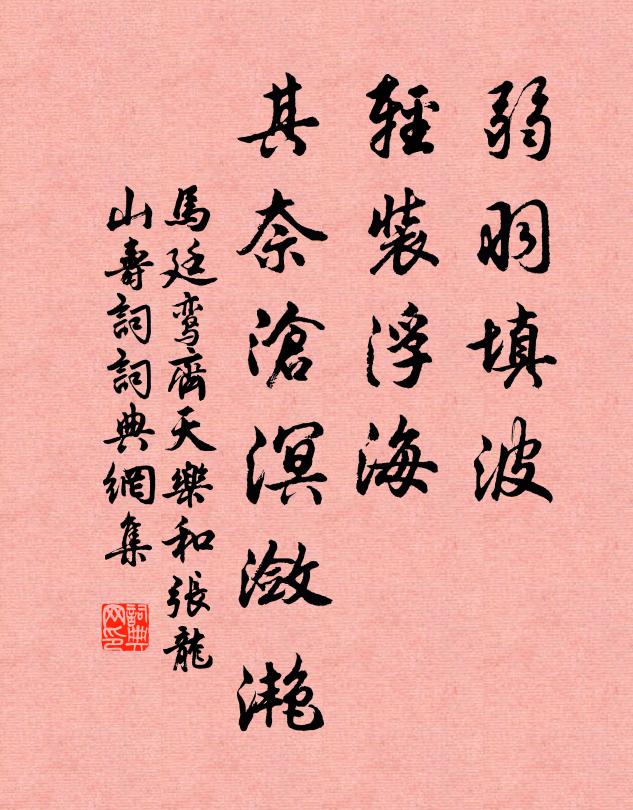 弱羽填波
輕裝浮海
其奈滄溟瀲灩
馬廷鸞齊天樂和張龍
山壽詞詞典網集
詞典网印